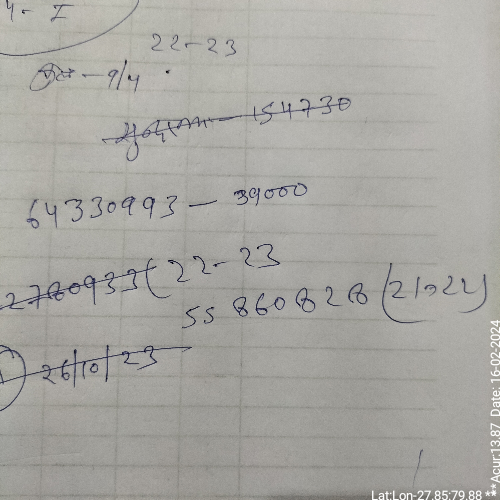 4 - I
22-23
- 9/4
154730
64330993 - 39000
2780933 ( 22-23
55860828 (21-22)
26/10/23
Lat:Lon-27.85:79.88 **Acur:13.87 Date: 16-02-2024